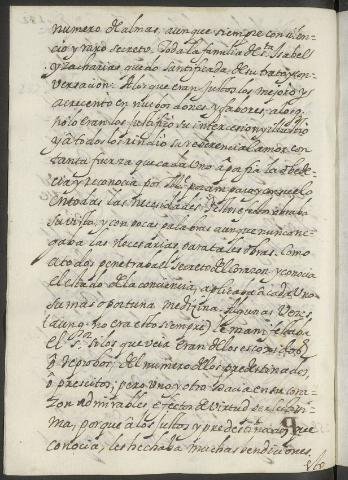 numero de almas, aunque siempre con silen-
cio y raro secreto. Toda la familia de s.ta Isabel
y Zacharias quedo santificada de su trato y con-
versacion. A los que eran justos los mejoró y
acrecentó en nuebos dones y fabores, a los q̃
no lo eran los justificó su intercesion y ilustró
y a todos los rindio su reberencial amor con
tanta fuerza que cada uno a porfia la obede-
cia y reconocia por M.e
en todas las necesidades.
su vista, y con pocas palabras aunque nunca ne-
gaba las necesarias para tales obras. Como
a todos penetraba el secreto del corazon y conocia
el estado de la conciencia, aplicaba a cada uno
su mas oportuna medicina. Algunas veces,
(aunq. no era esto siempre) le manifestaba
el s.or si los que veia eran de los escogidos,
ò reprobos, del numero de los predestinados
ò prescitos; pero uno y otro hacia en su cora-
zon admirables efectos de virtud perfectissi-
ma, porque a los justos y predestinados que
conocia, les hechaba muchas bendiciones.